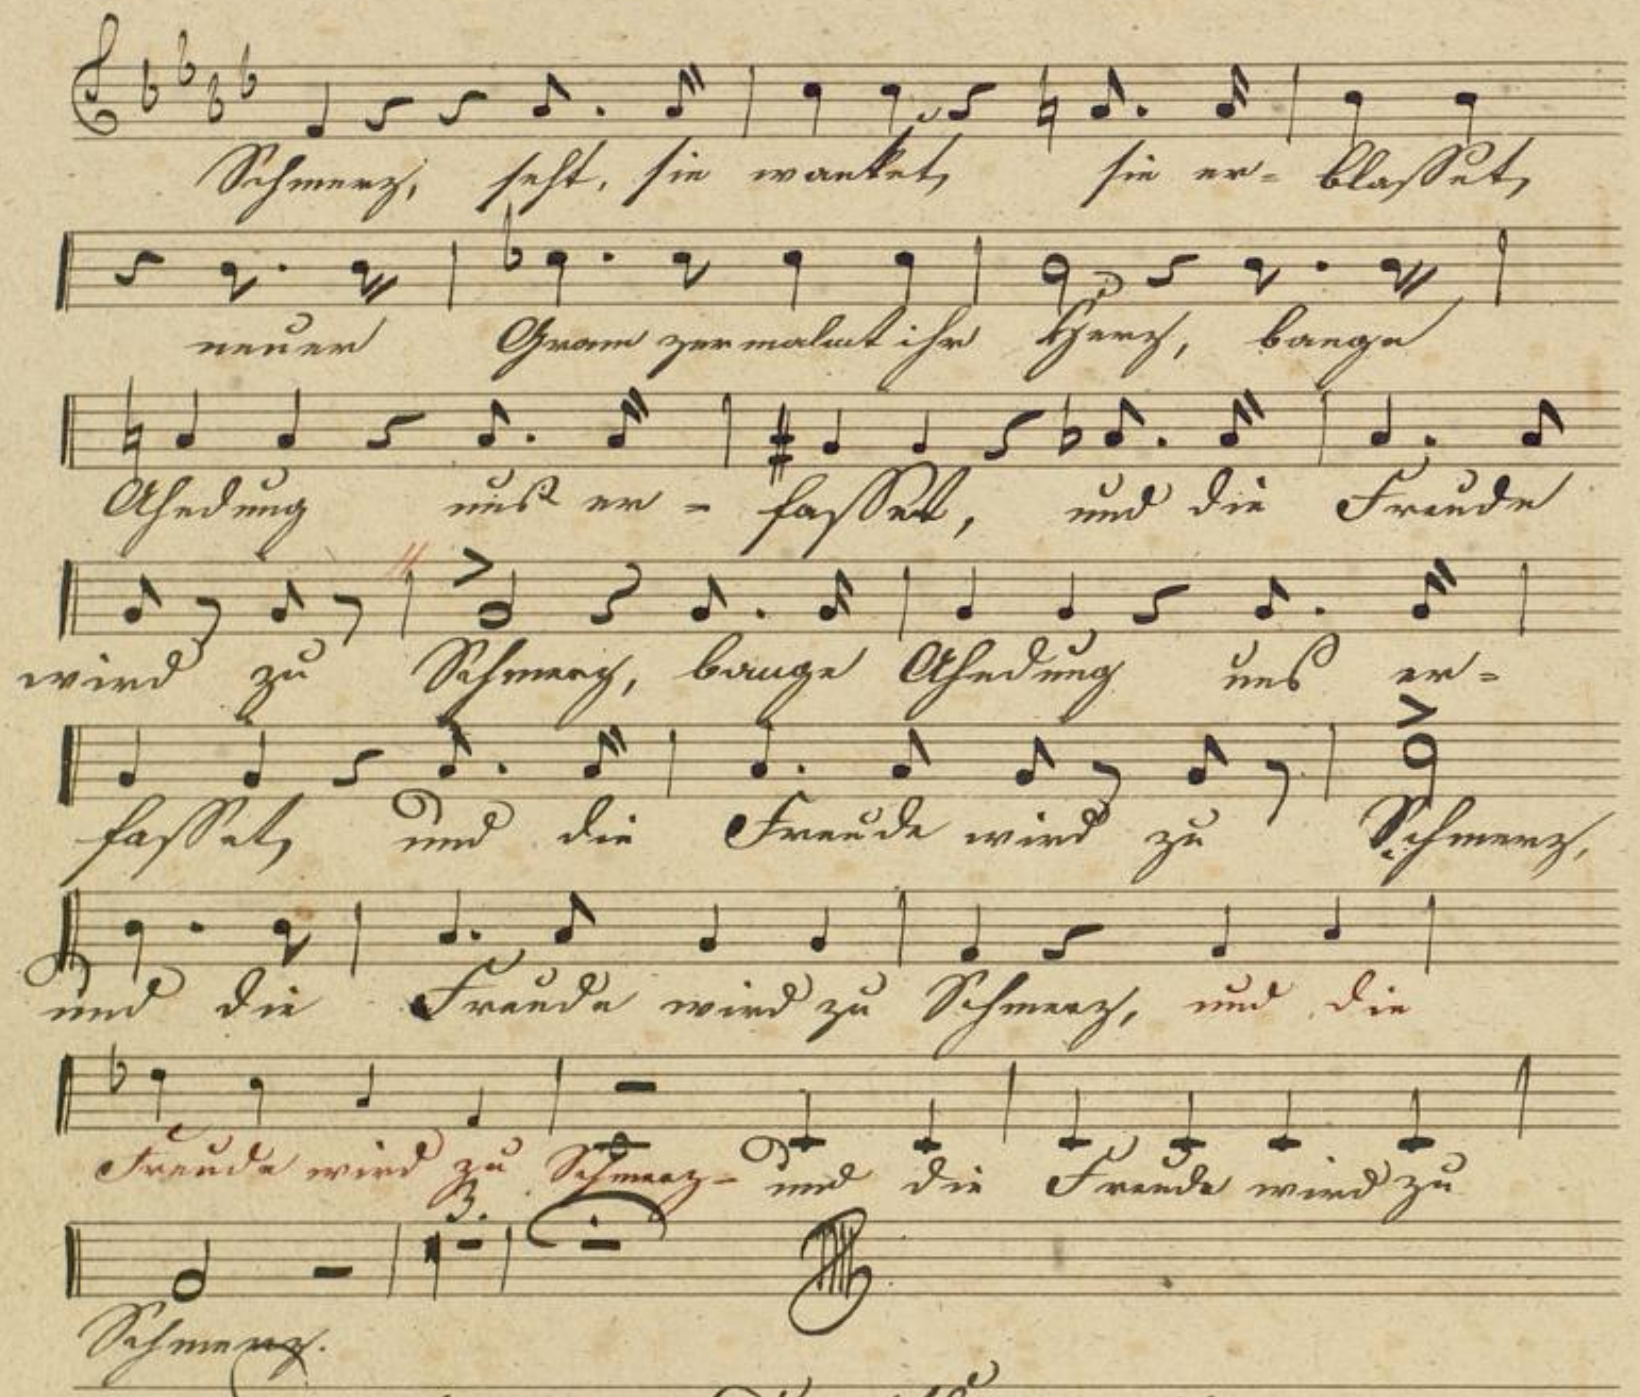 Schmerz, seht, sie wanket, sie er- blasset,
neuer Gram zermalmt ihr Herz, bange
Ahndung uns er- fasset, und die Freude
wird zu Schmerz, bange Ahndung uns er-
fasset, und die Freude wird zu Schmerz,
und die Freude wird zu Schmerz, und die
Freude wird zu Schmerz- und die Freude wird zu
3.
Schmerz.